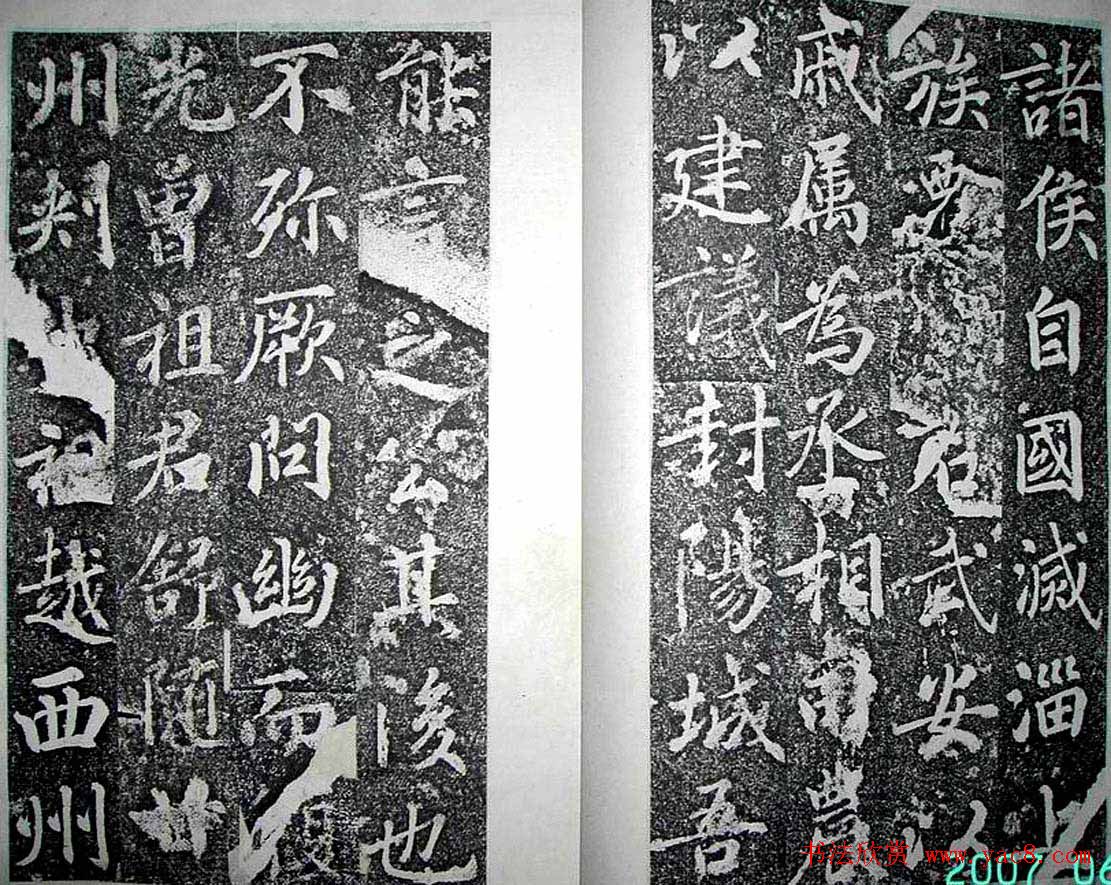 諸侯自國滅淄上
族西武安以
戚属為丞相農
以建議封陽城吾
能言之公其後也
不弥厥問幽而復
光曾祖君舒随
州刾史祖越西州
书法欣赏 www.yac8.com
2007 06